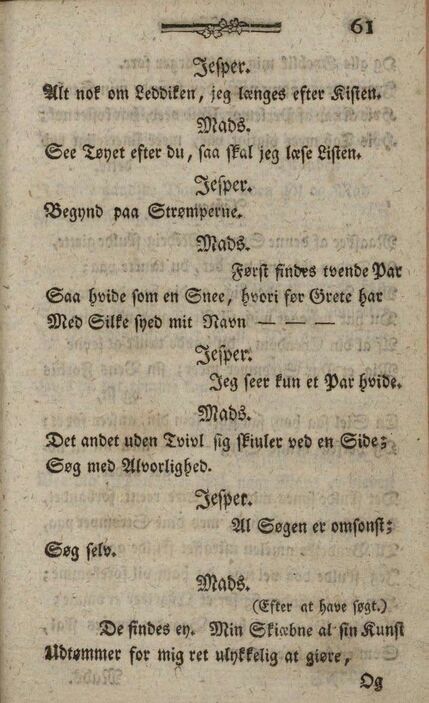 61
Jesper.
Alt nok om Leddiken, jeg længes efter Kisten.
Mads.
See Tøyet efter du, saa skal jeg læse Listen.
Jesper.
Begynd paa Strømperne.
Mads.
Først findes tvende Par
Saa hvide som en Snee, hvori før Grete har
Med Silke syed mit Navn — — —
Jesper.
Jeg seer kun et Par hvide.
Mads.
Det andet uden Tvivl sig skiuler ved en Side;
Søg med Alvorlighed.
Jesper.
Al Søgen er omsonst;
Søg selv.
Mads.
(Efter at have søgt.)
De findes ey. Min Skiæbne al sin Kunst
Udtømmer for mig ret ulykkelig at giøre,
Og